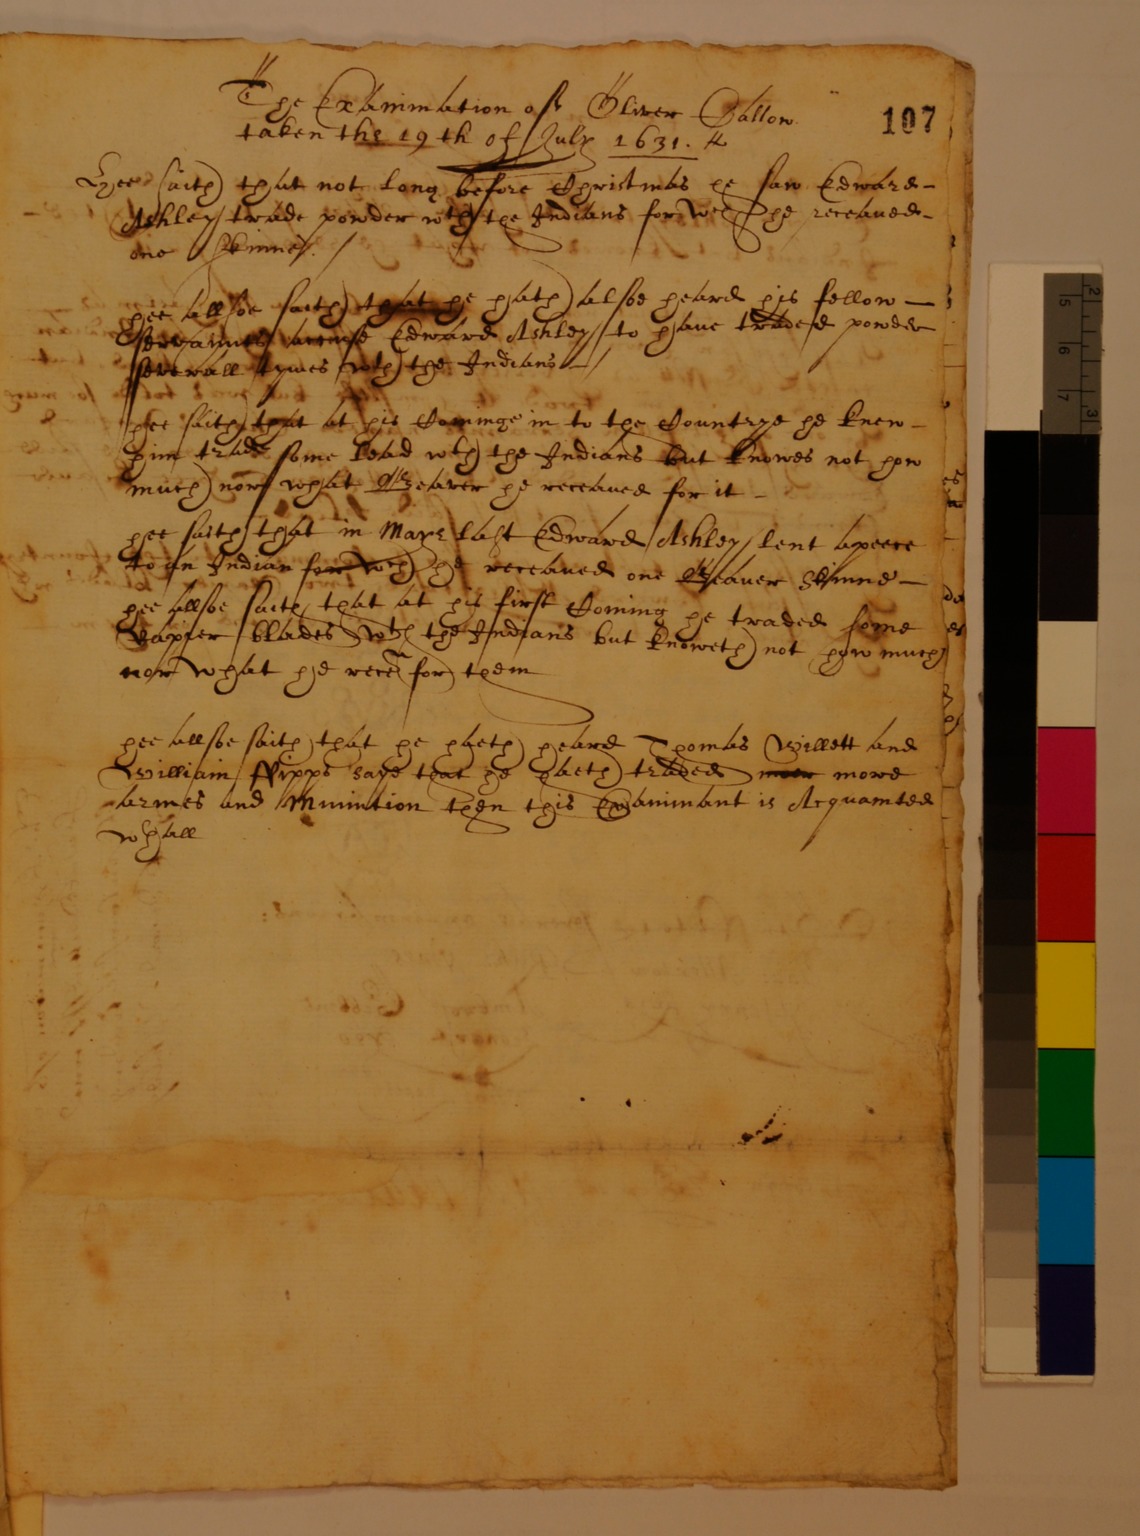 The Examination of Oliver Gallow
107
taken the 19th of July 1631.
Hee saith that not long before Christmas he saw Edward
Ashley trade powder wth the Indians for wch he receaued
one Skinne.
hee allsoe saith that he hath alsoe heard his fellow
servaunts accuse Edward Ashley to have traded powder
severall tymes wth the Indians
hee saith that at his Cominge in to the Countrye he knew
him trade some lead wth the Indians but knowes not how
much nor what Beaver he receaued for it
hee saith that in Maye last Edward Ashley lent a peece
to an Indian for wch he receaued one Beauer skinne
hee allsoe saith that at his first Coming he traded some
Rapier blades wth the Indians but knoweth not how much
nor what he reced for them
hee allsoe saith that he haeth heard Thomas Willett and
William Phipps saye that he haeth traded more
armes and Munition then this Examinant is Acquainted
whall